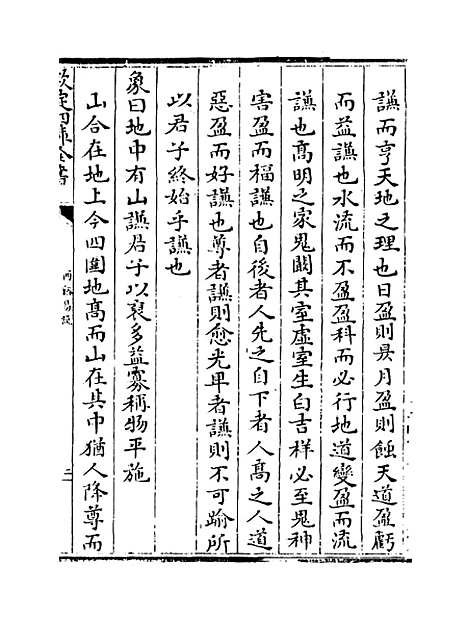 謙而亨天地之理也日盈則昃月盈則蝕天道盈虧
而益謙也水流而不盈盈科而必行地道變盈而流
謙也髙明之家鬼闞其室虚室生白吉祥必至鬼神
害盈而福謙也自後者人先之自下者人髙之人道
惡盈而好謙也尊者謙則愈光卑者謙則不可踰所
以君子終始乎謙也
象曰地中有山謙君子以裒多益寡稱物平施
山合在地上今四圍地髙而山在其中猶人降尊而
欽定四庫全書
丙子學易
二